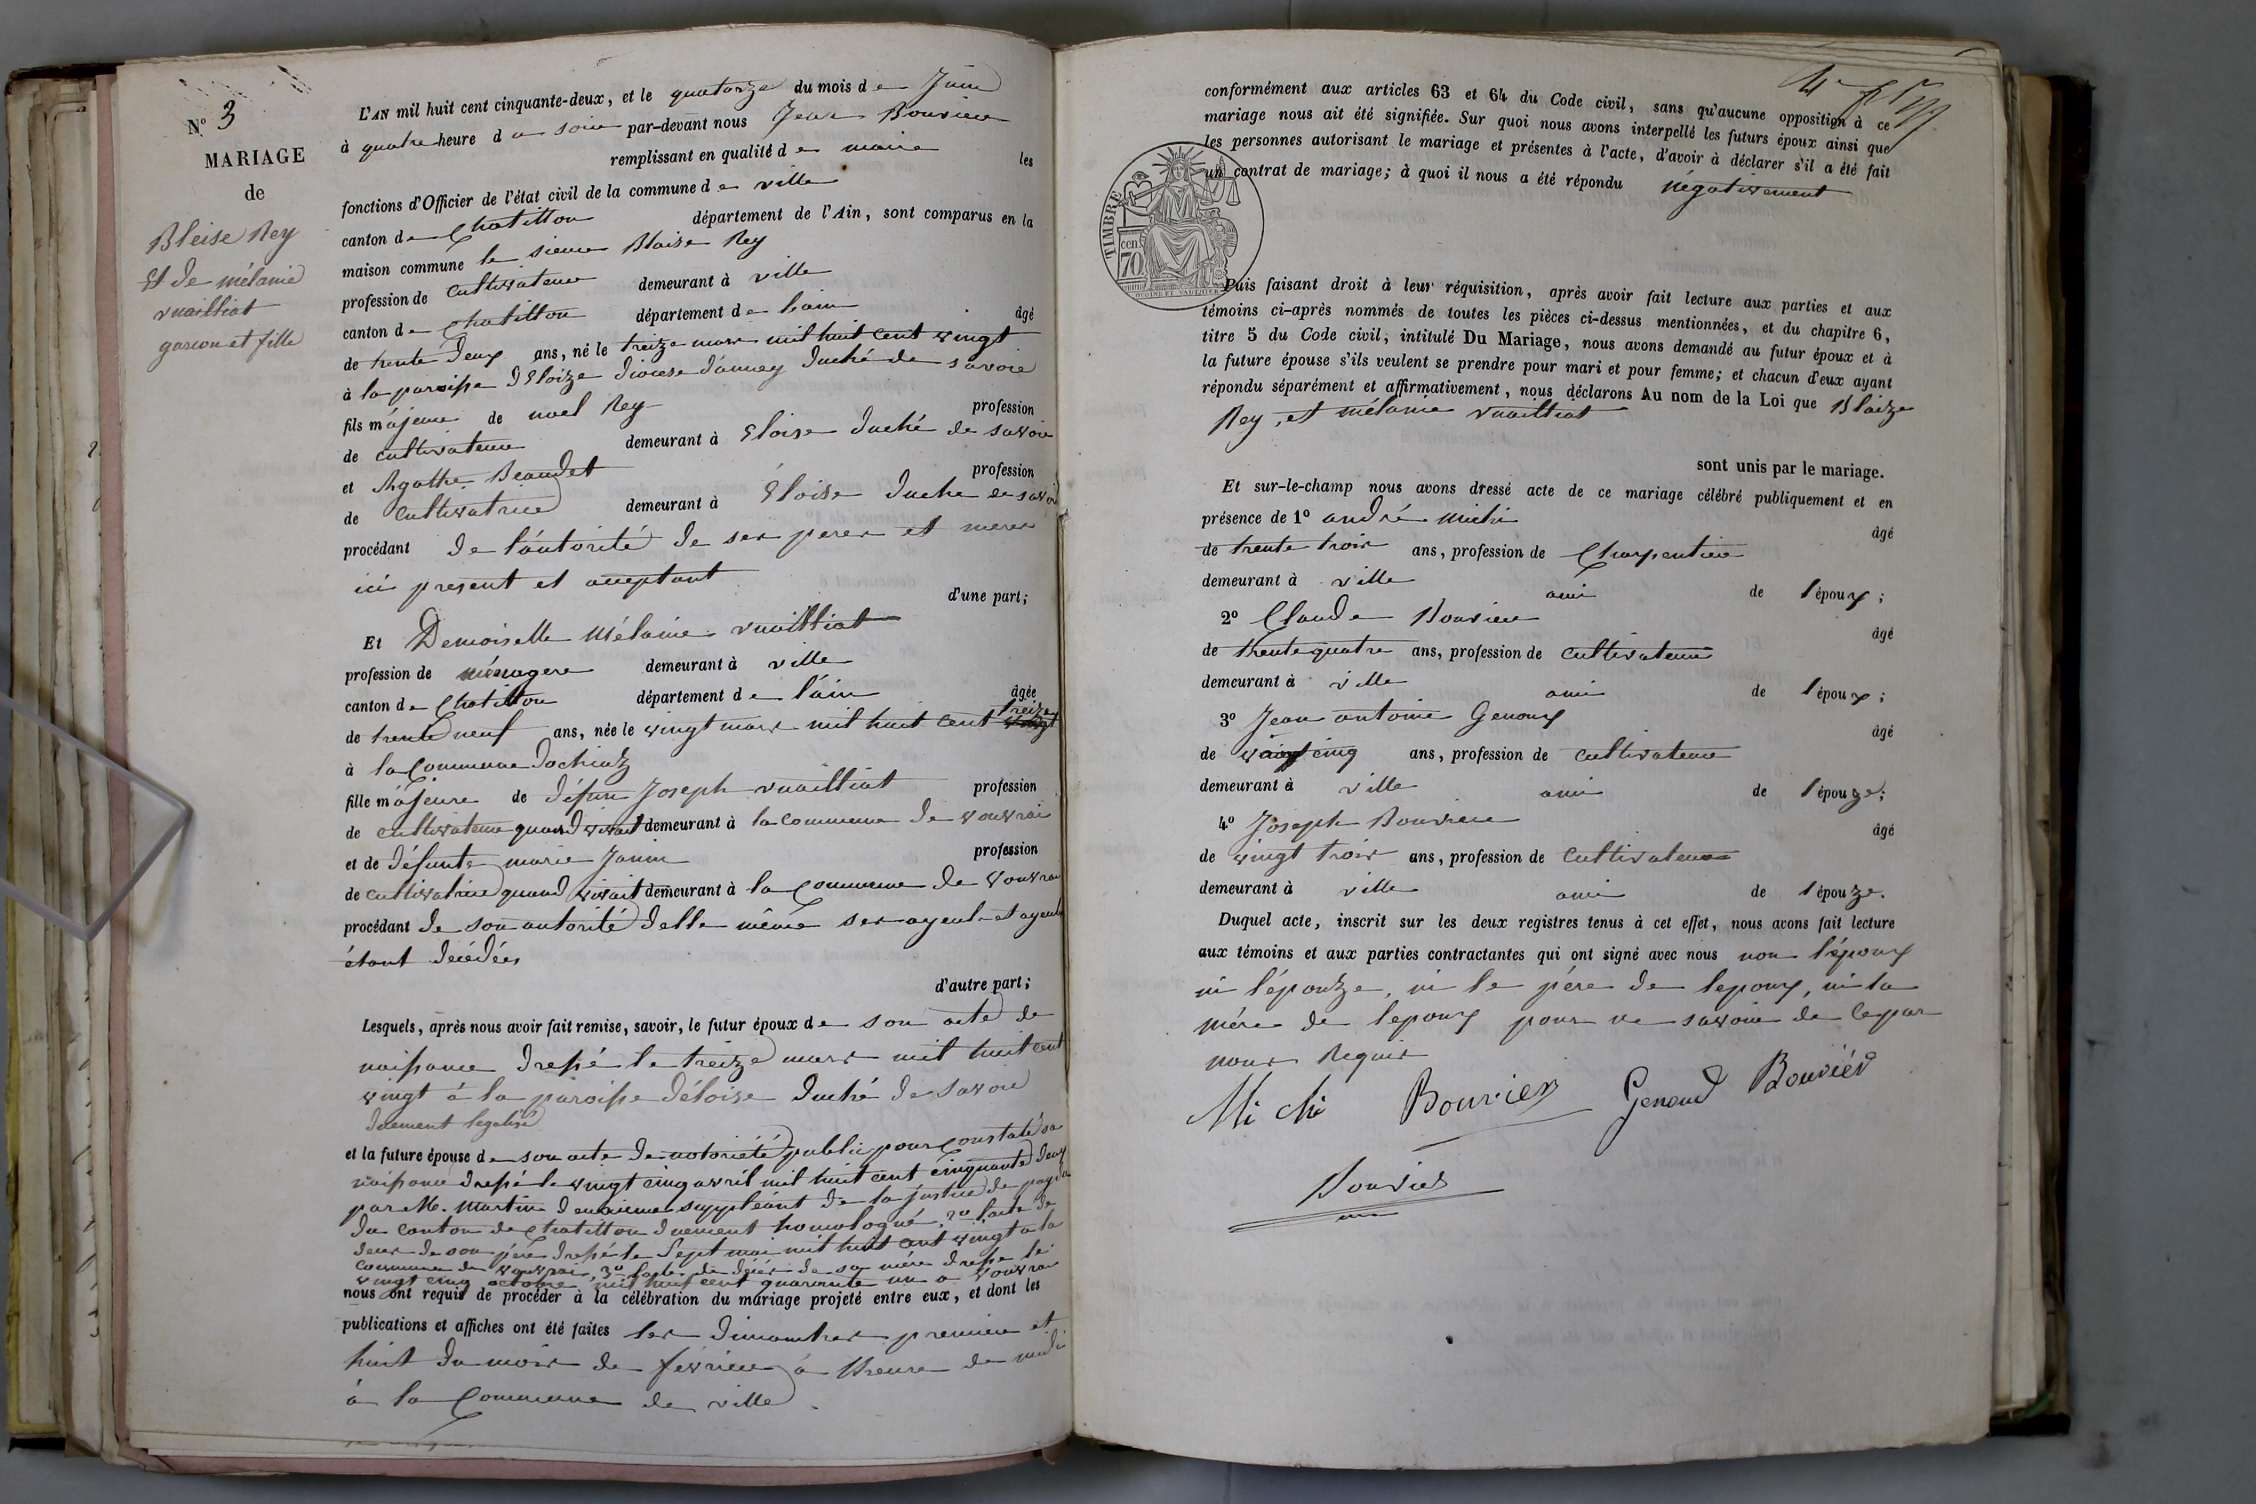 N.º 3
MARIAGE
de
Bleise Rey
Et de mélanie
vuailliat
garcon et fille
L'AN mil huit cent cinquante-deux, et le quatorze du mois de Juin
à quatre heure du soir par-devant nous Jean Bouvier
remplissant en qualité de maire les
fonctions d'Officier de l'état civil de la commune de ville
canton de Chatillon département de l'Ain, sont comparus en la
maison commune le sieur Blaise Rey
profession de cultivateur demeurant à ville
canton de Chatillon département de lain âgé
de trente deux ans, né le treize mars mil huit cent vingt
à la paroisse d'Eloize diocese d'annecy duché de savoie
fils majeur de noel Rey profession
de cultivateur demeurant à Eloise duché de savoie
et Agathe Beaudet profession
de cultivatrice demeurant à Eloise duche de savoi
procédant de l'autorité de ses peres et meres
ici present et acceptant
d'une part;
Et Demoiselle Mélanie vuailliat
profession de ménagere demeurant à ville
canton de Chatillon département de l'ain âgée
treize
de trente neuf ans, née le vingt mars mil huit cent vingt
à la Commune dochiatz
fille majeure de défun Joseph vuailliat profession
de cultivateur quand vivait demeurant à la commune de vouvrai
et de défunte marie Janin profession
de cultivatrice quand vivait demeurant à la Commune de vouvrai
procédant de son autorité delle même ses ayeul et ayeule
étant décédés
d'autre part;
Lesquels, après nous avoir fait remise, savoir, le futur époux de son acte de
naissance dressé le treize mars mil huit cent
vingt à la paroisse d'éloise duché de savoie
duement legalisé
et la future épouse de son acte de notoriété public pour constaté sa
naissance dressé le vingt cinq avril mil huit cent cinquante deux
par M. Martin deuxieme suppléant de la justice de paix
du canton de Chatillon duement homologué. 2º lacte de
deces de son père dressé le Sept mai mil huit cent vingt a la
commune de vouvrai, 3º lacte de décés de sa mère dresse le
vingt cinq octobre mil huit cent quarante un a vouvrai
nous ont requis de procéder à la célébration du mariage projeté entre eux, et dont les
publications et affiches ont été faites les dimanches premier et
huit du mois de février à lheure de midi
à la Commune de ville
conformément aux articles 63 et 64 du Code civil, sans qu'aucune opposition à ce
mariage nous ait été signifiée. Sur quoi nous avons interpellé les futurs époux ainsi que
les personnes autorisant le mariage et présentes à l'acte, d'avoir à déclarer s'il a été fait
un contrat de mariage; à quoi il nous a été répondu négativement
TIMBRE
cen.
70
Puis faisant droit à leur réquisition, après avoir fait lecture aux parties et aux
témoins ci-après nommés de toutes les pièces ci-dessus mentionnées, et du chapitre 6,
titre 5 du Code civil, intitulé Du Mariage, nous avons demandé au futur époux et à
la future épouse s'ils veulent se prendre pour mari et pour femme; et chacun d'eux ayant
répondu séparément et affirmativement, nous déclarons Au nom de la Loi que Blaize
Rey, et mélanie vuailliat
sont unis par le mariage.
Et sur-le-champ nous avons dressé acte de ce mariage célébré publiquement et en
présence de 1º andré michi âgé
de trente trois ans, profession de Charpentier
demeurant à ville ami de l'époux;
2º Claude Bouvier âgé
de trente quatre ans, profession de cultivateur
demeurant à ville ami de l'époux;
3º Jean antoine Genoux âgé
de vingt cinq ans, profession de cultivateur
demeurant à ville ami de l'épouze;
4º Joseph Bouvier âgé
de vingt trois ans, profession de cultivateur
demeurant à ville ami de l'épouze.
Duquel acte, inscrit sur les deux registres tenus à cet effet, nous avons fait lecture
aux témoins et aux parties contractantes qui ont signé avec nous non l'époux
ni l'épouze, ni le père de lepoux, ni la
mére de lepoux pour ne savoir de ce par
nous Requis
Mi chi Bouvier Genoud Bouvier
Bouvier